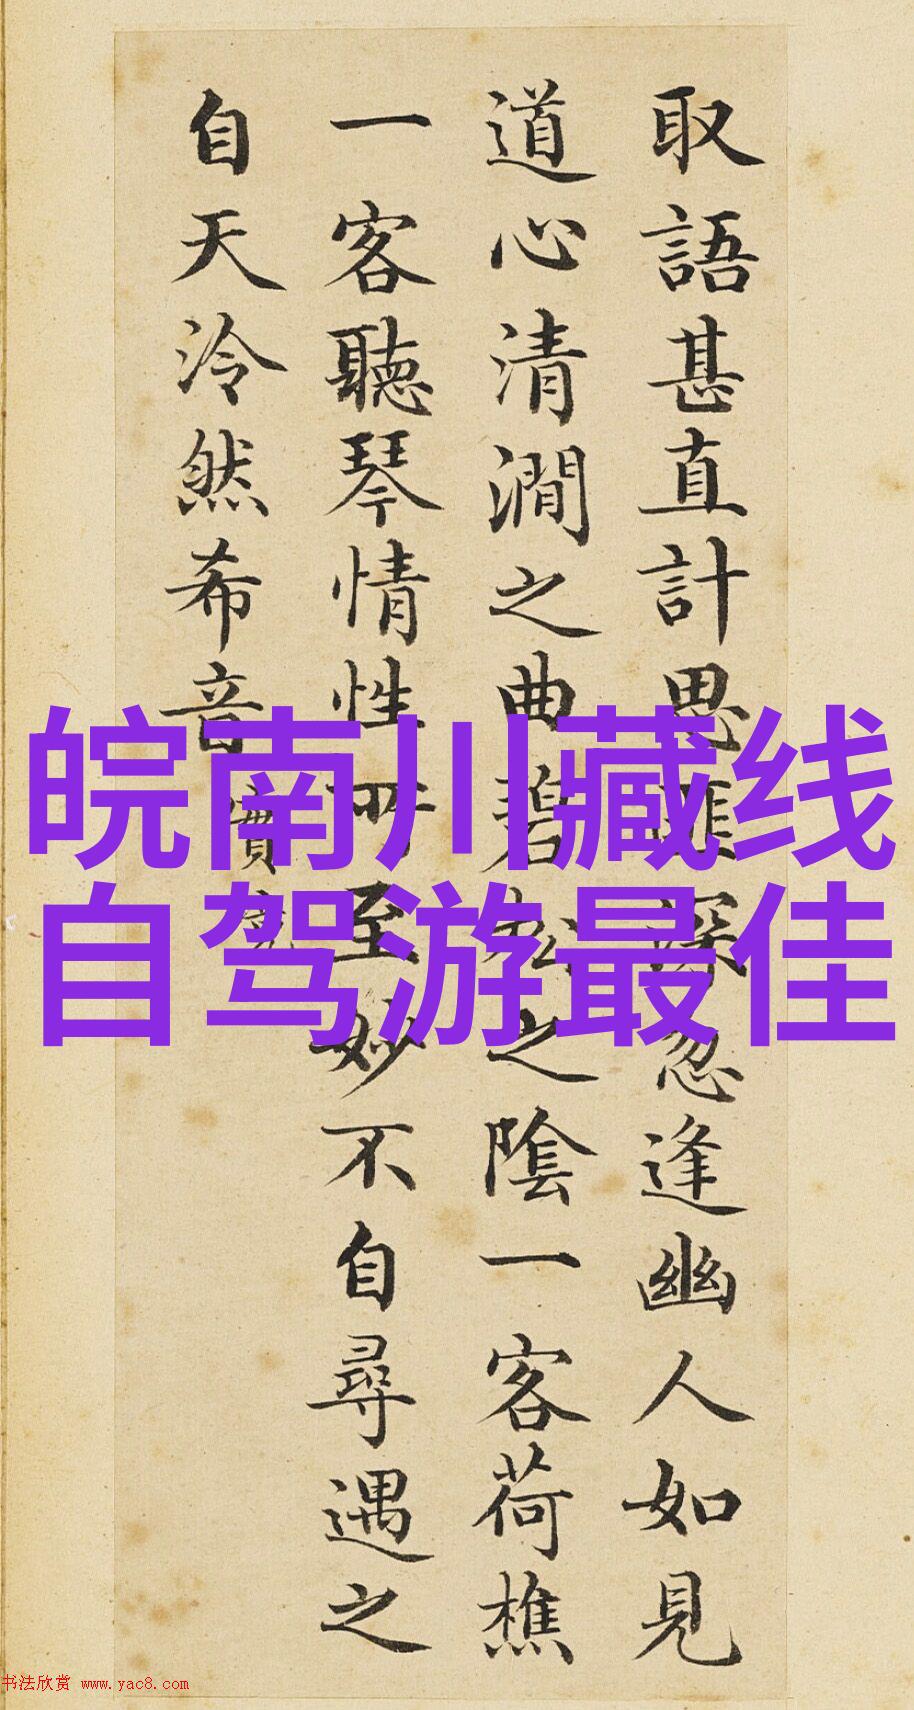 取語甚直計思匪深忽逢幽人如見
道心清澗之曲碧松之陰一客荷樵
一客聽琴情性所至妙不自尋遇之
自天泠然希音
實
皖南川藏线
自驾游最佳
书法欣赏 www.yac8.com